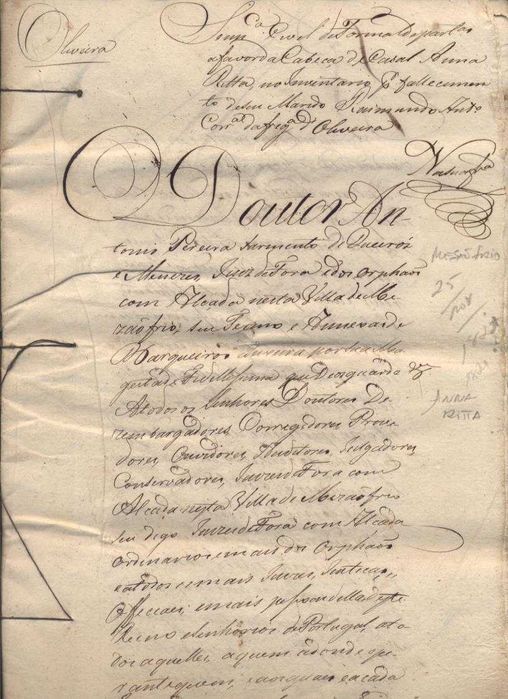 Oliveira
Civel de Formal de partas
a favor da Cabeça de Casal Anna
Ritta no Inventario, fallecimen
to de seu Marido Raimundo Anto
Corr.ª da freg.ª d' Oliveira
Doutor An-
tonio Pereira Sarmento de Queiros
e Menezes, Juiz de Fora e dos Orphaos
com Alcada nesta Villa de Me-
zaofrio, seu Termo e Annexas de
Barqueiros
que Deos guarde
A todos os Senhores Doutores De-
zembargadores, Corregedores, Prove
dores, Ouvidores, Auditores, Julgadores,
Conservadores, Juizes de Fora com
Alcada nesta Villa de Mezaofrio
seu digo Juizes de Fora com Alcada
Ordinarios e mais dos Orphaos
e a todos e mais Juizes, Justicas,
Officiaes, e mais pessoas deste
Reino e Senhorios de Portugal, ato
dos aquelles, a quem, aonde e pe
rante quem, e a os quaes e a cada
MESÃO FRIO
25
ANNA
RITTA